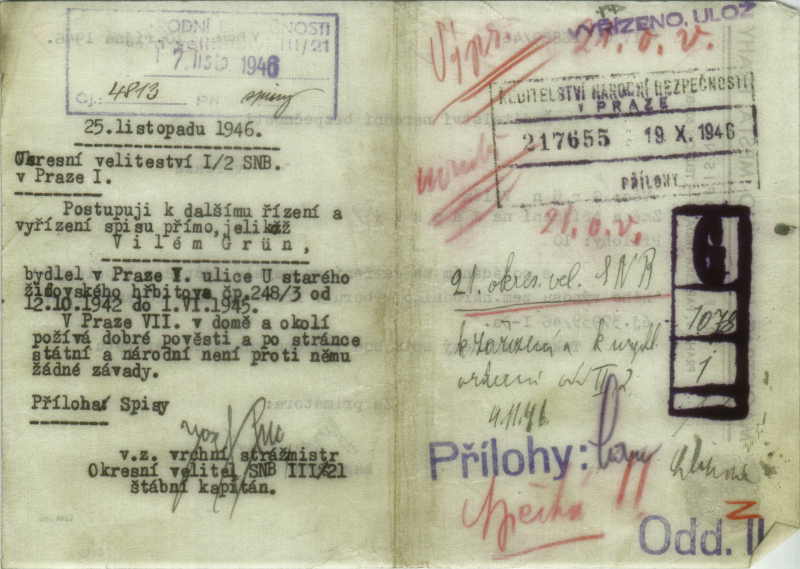 7. listo 1946
Čj.: 4813
spisy
25.listopadu 1946.
Okresní velitelství I/2 SNB.
v Praze I.
Postupuji k dalšímu řízení a
vyřízení spisu přímo,jelikož
Vilém Grün,
bydlel v Praze V. ulice U starého
židovského hřbitova čp.248/3 od
12.10.1942 do 1.VI.1945.
V Praze VII. v domě a okolí
požívá dobré pověsti a po stránce
státní a národní není proti němu
žádné závady.
Příloha: Spisy
v.z. vrchní strážmistr
Okresní velitel SNB III/21
štábní kapitán.
VYŘÍZENO, ULOŽ
21. o. v.
ŘEDITELSTVÍ NÁRODNÍ BEZPEČNOSTI
V PRAZE
217655 19 X. 1946
PŘÍLOHY
21. o. v.
21. okres. vel. SNB
6
1078
1
4.11.46
Přílohy:
Odd. II